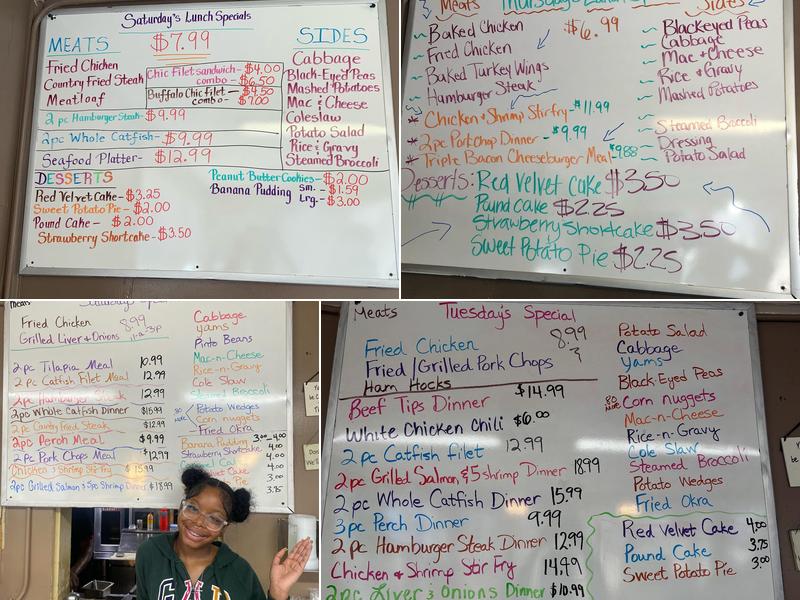 Saturday's Lunch Specials
MEATS
$7.99
SIDES
Fried Chicken
Country Fried Steak
Meatloaf
Chic Filet sandwich - $4.00
combo - $6.50
Buffalo Chic Filet - $4.50
combo - $7.00
2 pc Hamburger Steak - $9.99
2pc Whole Catfish - $9.99
Seafood Platter - $12.99
Cabbage
Black-Eyed Peas
Mashed Potatoes
Mac & Cheese
Coleslaw
Potato Salad
Rice & Gravy
Steamed Broccoli
DESSERTS
Red Velvet Cake - $3.25
Sweet Potato Pie - $2.00
Pound Cake - $2.00
Strawberry Shortcake - $3.50
Peanut Butter Cookies - $2.00
Banana Pudding Sm. - $1.59
Lrg. - $3.00
Meats Thursday's
Sides
Baked Chicken
$6.99
Fried Chicken
Baked Turkey Wings
Hamburger Steak
* Chicken & Shrimp Stirfry - $11.99
* 2pc Porkchop Dinner - $9.99
* Triple Bacon Cheeseburger Meal - $9.88
Blackeyed Peas
Cabbage
Mac & Cheese
Rice & Gravy
Mashed Potatoes
Steamed Broccoli
Dressing
Potato Salad
Desserts: Red Velvet Cake $3.50
Pound Cake $2.25
Strawberry Shortcake $3.50
Sweet Potato Pie $2.25
Meats
Fried Chicken 8.99
Grilled Liver & Onions
2pc Tilapia Meal 10.99
2pc Catfish Filet Meal 12.99
2pc Hamburger Steak 12.99
2pc Whole Catfish Dinner $15.99
2pc Country Fried Steak $12.99
2pc Perch Meal $9.99
2pc Pork Chops Meal $12.99
Chicken & Shrimp Stir Fry $15.99
2pc Grilled Salmon & 5pc Shrimp Dinner $18.99
Cabbage
Yams
Pinto Beans
Mac-n-Cheese
Rice-n-Gravy
Cole Slaw
Steamed Broccoli
Potato Wedges
Corn nuggets
Fried Okra
Banana Pudding 3.00 4.00
Strawberry Shortcake 4.00
Cake 4.00
Pie 3.75
Meats Tuesday's Special
Fried Chicken 8.99
Fried/Grilled Pork Chops
Ham Hocks
Beef Tips Dinner $14.99
White Chicken Chili $6.00
2pc Catfish filet 12.99
2pc Grilled Salmon & 5 shrimp Dinner 18.99
2pc Whole Catfish Dinner 15.99
3pc Perch Dinner 9.99
2pc Hamburger Steak Dinner 12.99
Chicken & Shrimp Stir Fry 14.99
2pc Liver & Onions Dinner $10.99
Potato Salad
Cabbage
Yams
Black-Eyed Peas
Corn nuggets
Mac-n-Cheese
Rice-n-Gravy
Cole Slaw
Steamed Broccoli
Potato Wedges
Fried Okra
Red Velvet Cake 4.00
Pound Cake 3.75
Sweet Potato Pie 3.00